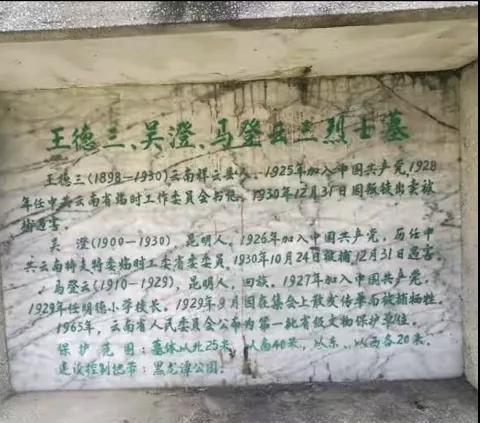 王德三、吴澄、马登云三烈士墓
王德三(1898-1930)云南祥云县人。1925年加入中国共产党,1928
年任中共云南省临时工作委员会书记。1930年12月31日因叛徒出卖被
捕遇害。
吴 澄(1900-1930),昆明人。1926年加入中国共产党,历任中
共云南特支特委临时工委省委委员。1930年10月24日被捕,12月31日遇害。
马登云(1910-1929),昆明人,回族。1927年加入中国共产党,
1929年任明德小学校长。1929年9月因在集会上散发传单而被捕牺牲。
1965年,云南省人民委员会公布为第一批省级文物保护单位。
保护范围:墓体以北25米,以南40米,以东、以西各20米。
建设控制地带:黑龙潭公园。